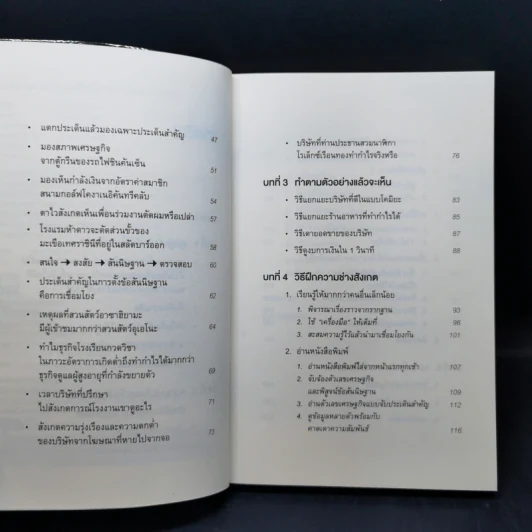 • แตกประเด็นแล้วมองเฉพาะประเด็นสำคัญ 47
• มองสภาพเศรษฐกิจ
จากตู้กรีนของรถไฟชินคันเซ็น 51
• มองเห็นกำลังเงินจากอัตราค่าสมาชิก
สนามกอล์ฟโคงาเนอิคันทรีคลับ 54
• ตาไวสังเกตเห็นเพื่อนร่วมงานตัดผมหรือเปล่า 57
• โรงแรมห้าดาวจะตัดส่วนขั้วของ
มะเขือเทศราชินีที่อยู่ในสลัดบาร์ออก 58
• สนใจ → สงสัย → สันนิษฐาน → ตรวจสอบ 60
• ประเด็นสำคัญในการตั้งข้อสันนิษฐาน
คือการเชื่อมโยง 62
• เหตุผลที่สวนสัตว์อาซาฮิยามะ
มีผู้เข้าชมมากกว่าสวนสัตว์อุเอโนะ 64
• ทำไมธุรกิจโรงเรียนกวดวิชา
ในภาวะอัตราการเกิดต่ำถึงทำกำไรได้มากกว่า
ธุรกิจดูแลผู้สูงอายุที่กำลังขยายตัว 69
• เวลาบริษัทที่ปรึกษา
ไปสังเกตการณ์โรงงานเขาดูอะไร 71
• สังเกตความรุ่งเรืองและความตกต่ำ
ของบริษัทจากโฆษณาที่หายไปจากจอ 72
• บริษัทที่ท่านประธานสวมนาฬิกา
โรเล็กซ์เรือนทองทำกำไรจริงหรือ 76
บทที่ 3 ทำตามตัวอย่างแล้วจะเห็น
• วิธีแยกแยะบริษัทที่ดีในแบบโคมิยะ 83
• วิธีแยกแยะร้านอาหารที่ทำกำไรได้ 85
• วิธีเดายอดขายของบริษัท 87
• วิธีดูงบการเงินใน 1 วินาที 88
บทที่ 4 วิธีฝึกความช่างสังเกต
1. เรียนรู้ให้มากกว่าคนอื่นเล็กน้อย
1. พิจารณาเรื่องราวจากรากฐาน 93
2. ใช้ "เครื่องมือ" ให้เต็มที่ 96
3. สะสมความรู้ไว้แล้วนำมาเชื่อมโยงกัน 101
2. อ่านหนังสือพิมพ์
1. อ่านหนังสือพิมพ์ไล่จากหน้าแรกทุกเช้า 107
2. จับจ้องตัวเลขเศรษฐกิจ
และพิสูจน์ข้อสันนิษฐาน 109
3. อ่านตัวเลขเศรษฐกิจแบบจับประเด็นสำคัญ 112
4. ดูข้อมูลหลายตัวพร้อมกับ
คาดเดาความสัมพันธ์ 116